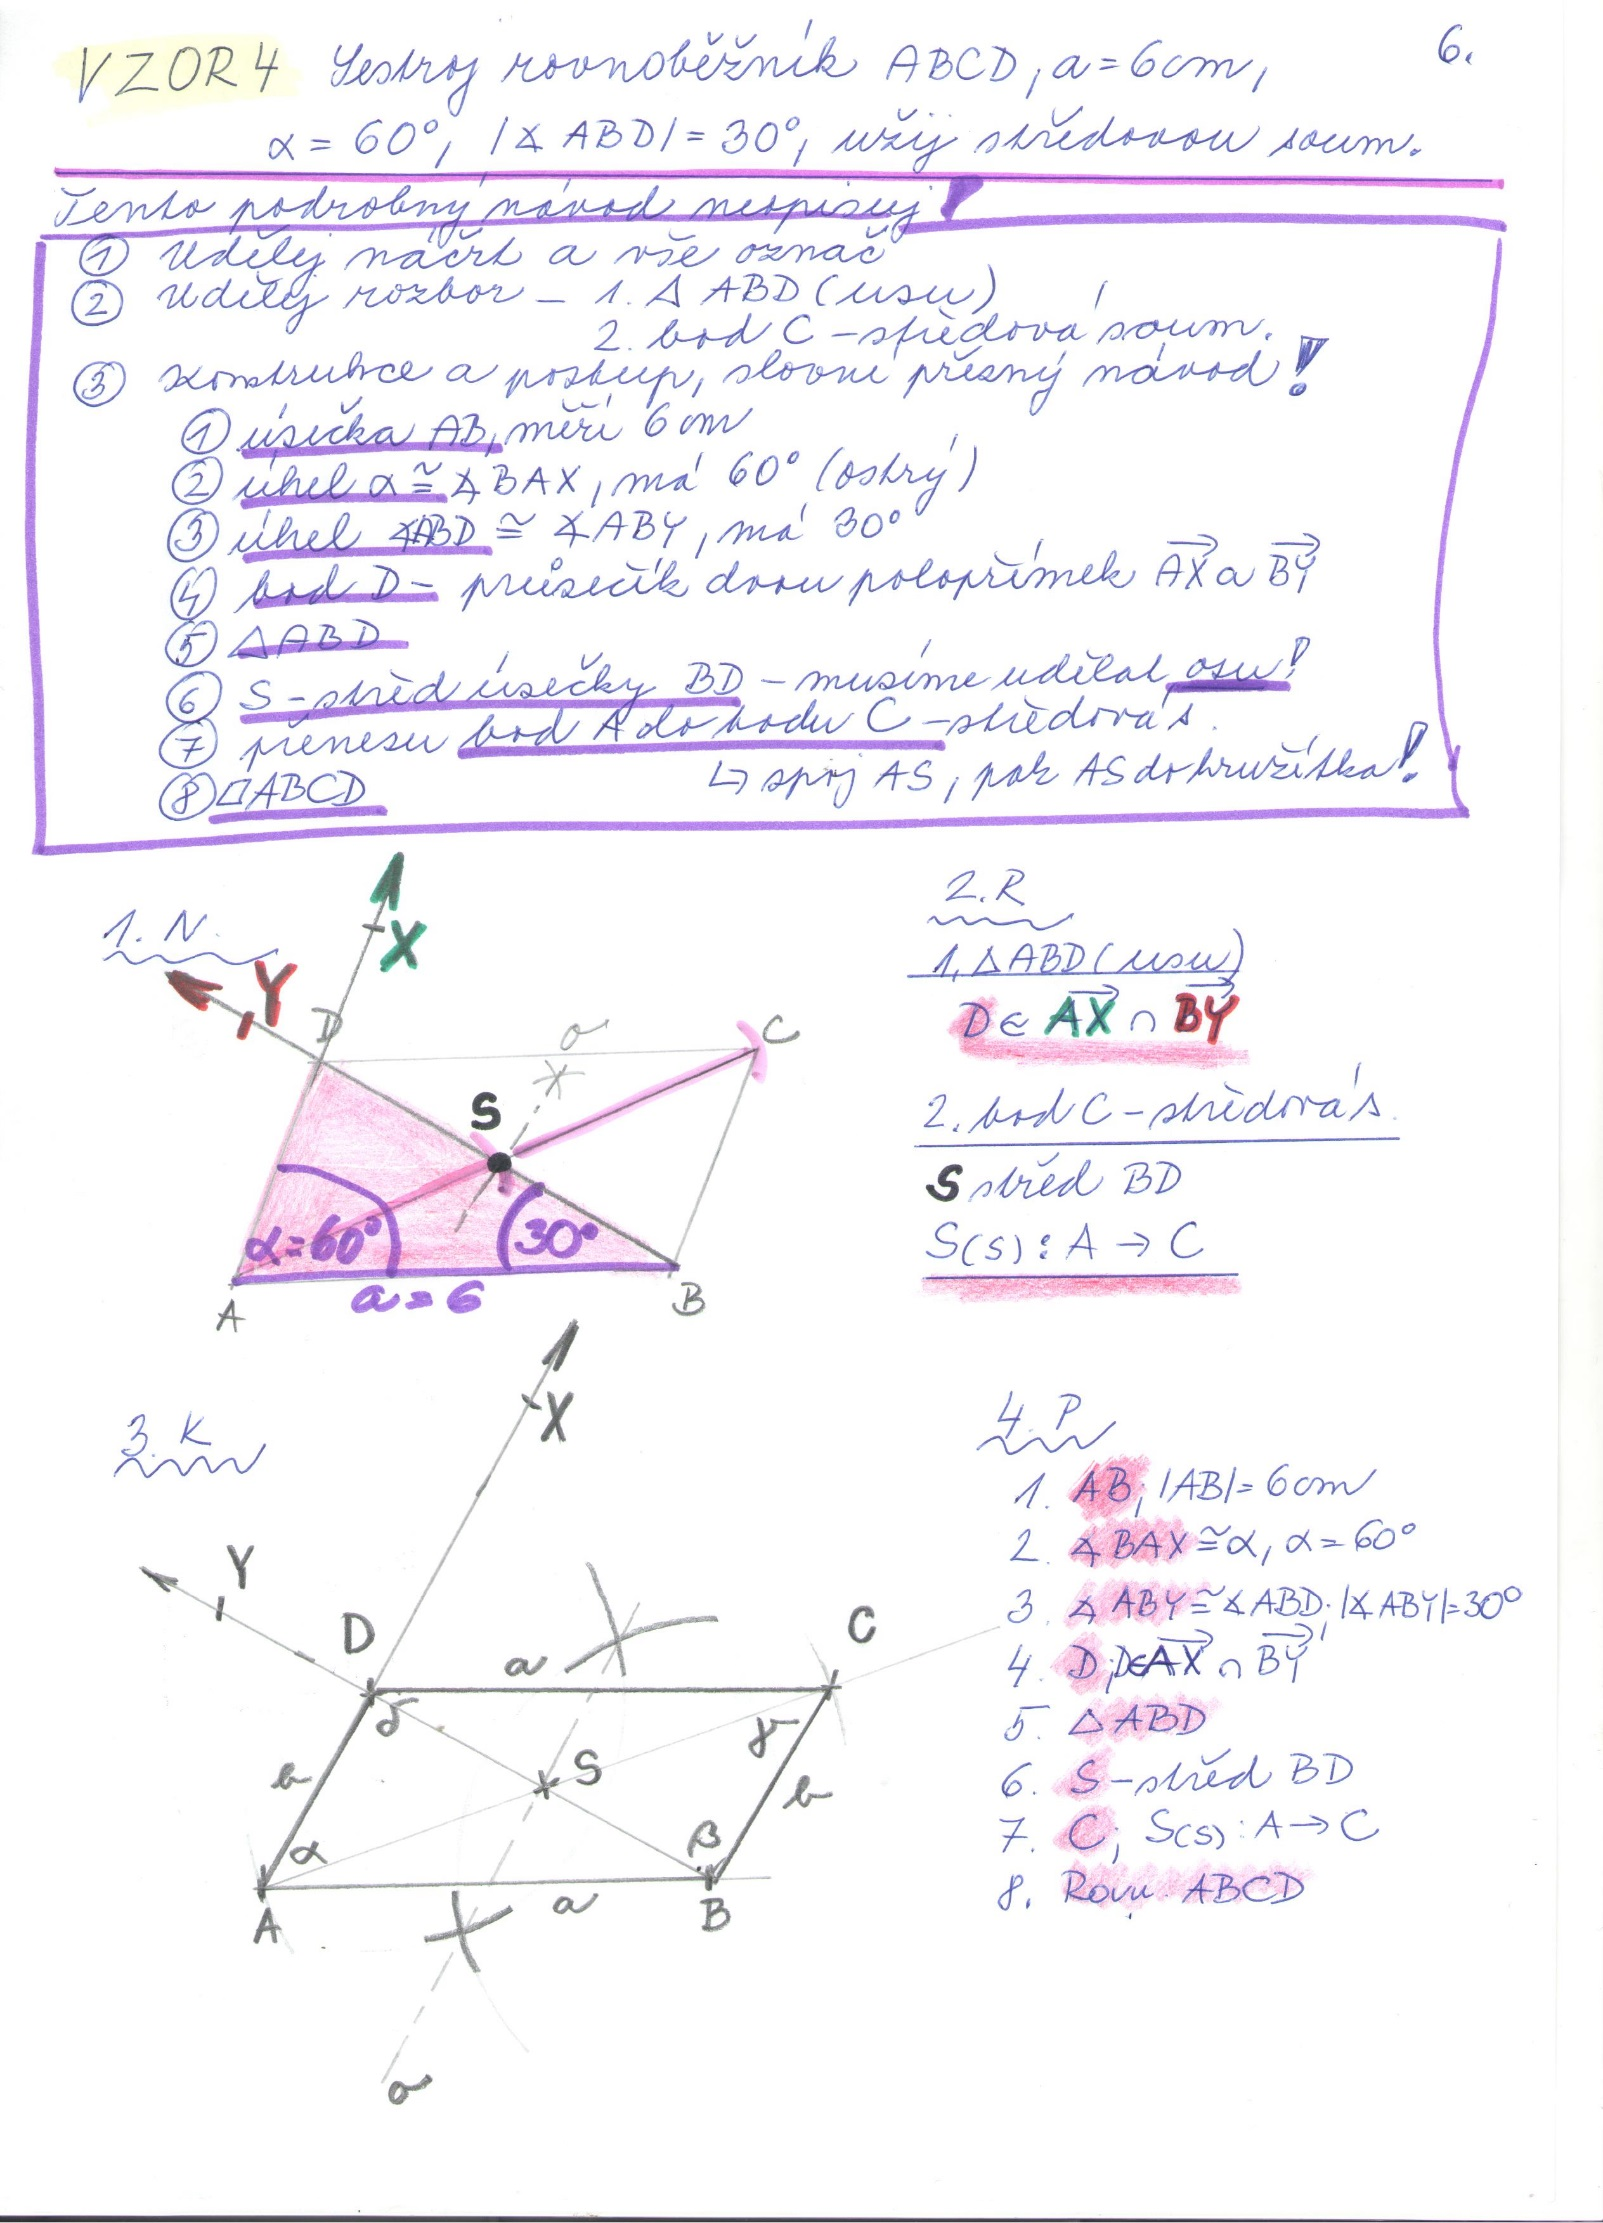 VZOR 4 Sestroj rovnoběžník ABCD, a = 6cm, 6.
α = 60°, |∢ ABD| = 30°, užij středovou soum.
Tento podrobný návod neopisuj!
① Udělej náčrt a vše označ
② Udělej rozbor – 1. △ ABD (usu)
2. bod C – středová soum.
③ Konstrukce a postup, slovní přesný návod!
① úsečka AB, měří 6cm
② úhel α ≅ ∢ BAX, má 60° (ostrý)
③ úhel ∢ABD ≅ ∢ABY, má 30°
④ bod D – průsečík dvou polopřímek AX a BY
⑤ △ABD
⑥ S – střed úsečky BD – musíme udělat osu!
⑦ přenesu bod A do bodu C – středová s.
↳ spoj AS, pak AS do kružítka!
⑧ ▱ABCD
1. N.
X
Y
D
o
C
S
α = 60°
30°
A
a = 6
B
2. R
1. △ABD (usu)
D ∈ AX ∩ BY
2. bod C – středová s.
S střed BD
S(s) : A → C
3. K
X
Y
D
C
a
δ
γ
b
S
b
α
β
A
a
B
o
4. P
1. AB; |AB| = 6cm
2. ∢ BAX ≅ α, α = 60°
3. ∢ ABY ≅ ∢ABD; |∢ABY| = 30°
4. D; D∈AX ∩ BY
5. △ ABD
6. S – střed BD
7. C; S(s) : A → C
8. Rovn. ABCD